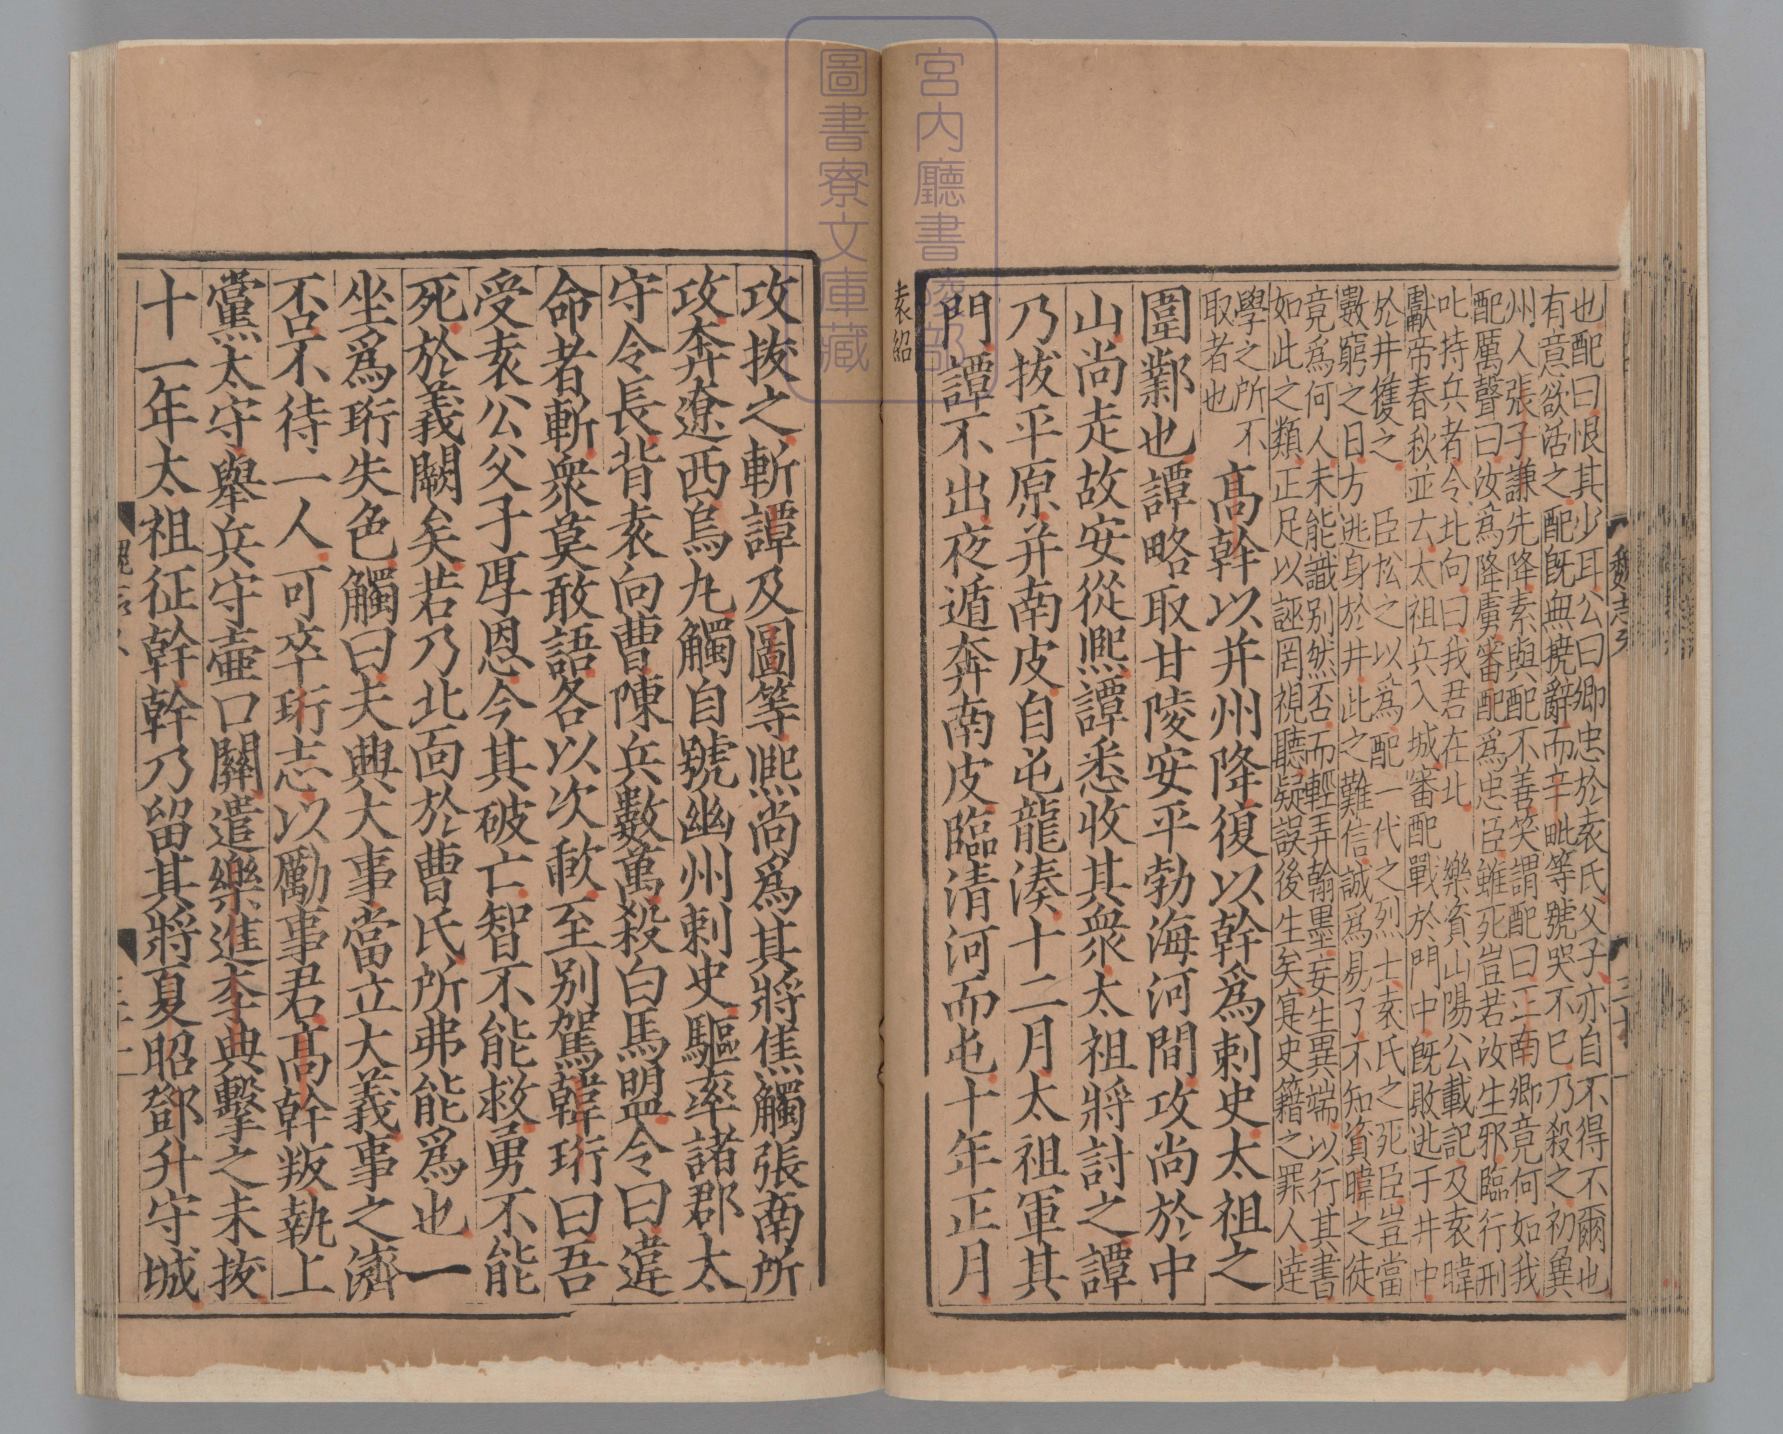 也配曰恨其少耳公曰卿忠於袁氏父子亦自不得不爾也
有意欲活之配旣無撓辭而辛毗等號哭不巳乃殺之初兾
州人張子謙先降素與配不善笑謂配曰正南卿竟何如我
配厲聲曰汝爲降虜審配爲忠臣雖死豈若汝生邪臨行刑
叱持兵者令北向曰我君在北 樂資山陽公載記及袁暐
獻帝春秋並云太祖兵入城審配戰於門中旣敗逃于井中
於井獲之 臣松之以爲配一代之烈士袁氏之死臣豈當
數窮之日方逃身於井此之難信誠爲易了不知資暐之徒
竟爲何人未能識別然否而輕弄翰墨妄生異端以行其書
如此之類正足以誣罔視聽疑誤後生矣寔史籍之罪人達
學之所不
取者也
高幹以并州降復以幹爲刺史太祖之
圍鄴也譚略取甘陵安平勃海河間攻尚於中
山尚走故安從熙譚悉收其衆太祖將討之譚
乃拔平原并南皮自屯龍湊十二月太祖軍其
門譚不出夜遁奔南皮臨清河而屯十年正月
袁紹
攻拔之斬譚及圖等熙尚爲其將焦觸張南所
攻奔遼西烏丸觸自號幽州刺史驅率諸郡太
守令長背袁向曹陳兵數萬殺白馬盟令曰違
命者斬衆莫敢語各以次歃至別駕韓珩曰吾
受袁公父子厚恩今其破亡智不能救勇不能
死於義闕矣若乃北面於曹氏所弗能爲也一
坐爲珩失色觸曰夫興大事當立大義事之濟
否不待一人可卒珩志以勵事君高幹叛執上
黨太守舉兵守壷口關遣樂進李典擊之未拔
十一年太祖征幹幹乃留其將夏昭鄧升守城
宮内廳書陵部
圖書寮文庫藏